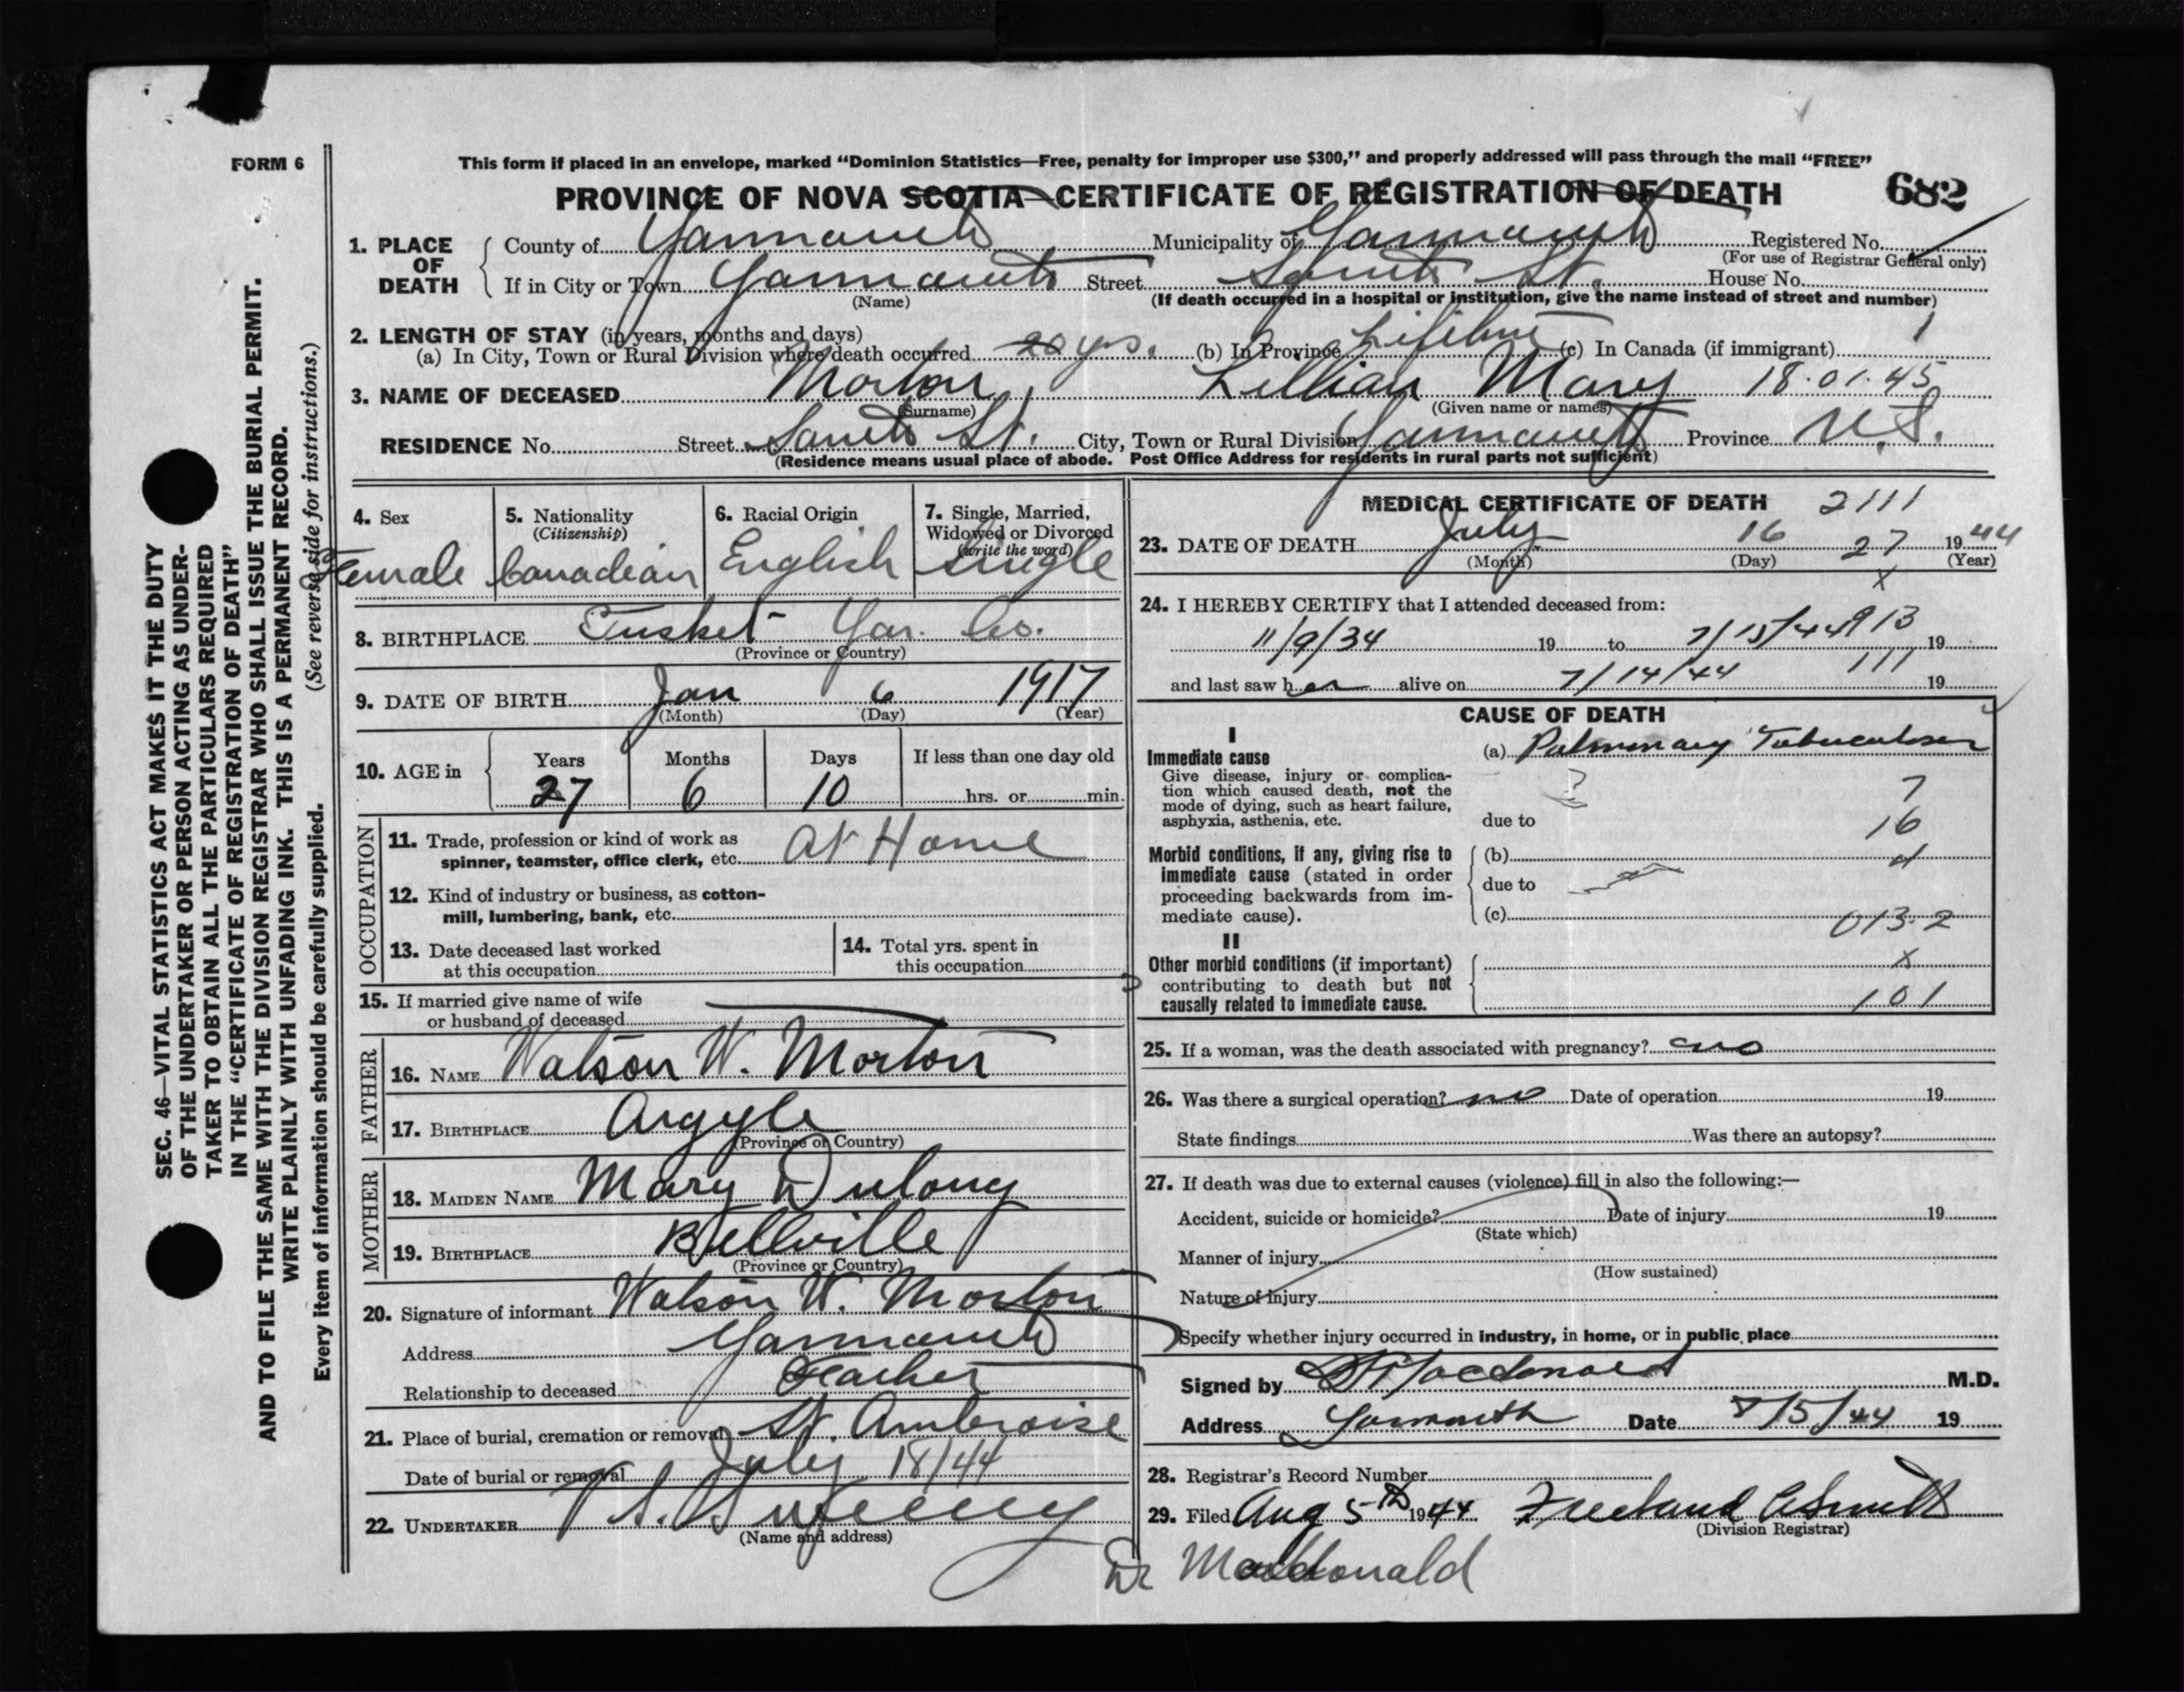 FORM 6
This form if placed in an envelope, marked “Dominion Statistics—Free, penalty for improper use $300,” and properly addressed will pass through the mail “FREE”
PROVINCE OF NOVA SCOTIA—CERTIFICATE OF REGISTRATION OF DEATH 682
1. PLACE OF DEATH
County of Yarmouth Municipality of Yarmouth Registered No.
(For use of Registrar General only)
If in City or Town Yarmouth Street South St. House No.
(Name) (If death occurred in a hospital or institution, give the name instead of street and number)
2. LENGTH OF STAY (in years, months and days) 1
(a) In City, Town or Rural Division where death occurred 20 yrs. (b) In Province Lifetime (c) In Canada (if immigrant)
3. NAME OF DECEASED Morton, Lillian Mary 18·01·45
(Surname) (Given name or names)
RESIDENCE No. Street South St. City, Town or Rural Division Yarmouth Province N.S.
(Residence means usual place of abode. Post Office Address for residents in rural parts not sufficient)
4. Sex
Female
5. Nationality
(Citizenship)
Canadian
6. Racial Origin
English
7. Single, Married,
Widowed or Divorced
(write the word)
Single
8. BIRTHPLACE Tusket Yar. Co.
(Province or Country)
9. DATE OF BIRTH Jan 6 1917
(Month) (Day) (Year)
10. AGE in
Years Months Days If less than one day old
27 6 10 hrs. or min.
OCCUPATION
11. Trade, profession or kind of work as
spinner, teamster, office clerk, etc. At Home
12. Kind of industry or business, as cotton-
mill, lumbering, bank, etc.
13. Date deceased last worked
at this occupation
14. Total yrs. spent in
this occupation
15. If married give name of wife
or husband of deceased
FATHER
16. NAME Watson W. Morton
17. BIRTHPLACE Argyle
(Province or Country)
MOTHER
18. MAIDEN NAME Mary Dulong
19. BIRTHPLACE Bellville
(Province or Country)
20. Signature of informant Watson W. Morton
Address Yarmouth
Relationship to deceased Father
21. Place of burial, cremation or removal St. Ambroise
Date of burial or removal July 18/44
22. UNDERTAKER V. S. Sweeny
(Name and address)
MEDICAL CERTIFICATE OF DEATH 2111
23. DATE OF DEATH July 16 27 1944
(Month) (Day) (Year)
x
24. I HEREBY CERTIFY that I attended deceased from:
11/9/34 19 to 7/15/44 913 19
and last saw her alive on 7/14/44 111 19
CAUSE OF DEATH
I
Immediate cause
Give disease, injury or complica-
tion which caused death, not the
mode of dying, such as heart failure,
asphyxia, asthenia, etc.
(a) Pulmonary Tuberculosis
? 7
due to 16
Morbid conditions, if any, giving rise to
immediate cause (stated in order
proceeding backwards from im-
mediate cause).
(b)
due to
(c) 013·2
II
Other morbid conditions (if important)
contributing to death but not
causally related to immediate cause.
x
101
25. If a woman, was the death associated with pregnancy? no
26. Was there a surgical operation? no Date of operation 19
State findings Was there an autopsy?
27. If death was due to external causes (violence) fill in also the following:—
Accident, suicide or homicide? Date of injury 19
(State which)
Manner of injury
(How sustained)
Nature of injury
Specify whether injury occurred in industry, in home, or in public place
Signed by Macdonald M.D.
Address Yarmouth Date 8/5/44 19
28. Registrar’s Record Number
29. Filed Aug 5th 1944 Freeland Smith
(Division Registrar)
Dr Macdonald
SEC. 46—VITAL STATISTICS ACT MAKES IT THE DUTY
OF THE UNDERTAKER OR PERSON ACTING AS UNDER-
TAKER TO OBTAIN ALL THE PARTICULARS REQUIRED
IN THE “CERTIFICATE OF REGISTRATION OF DEATH”
AND TO FILE THE SAME WITH THE DIVISION REGISTRAR WHO SHALL ISSUE THE BURIAL PERMIT.
WRITE PLAINLY WITH UNFADING INK. THIS IS A PERMANENT RECORD.
Every item of information should be carefully supplied. (See reverse side for instructions.)